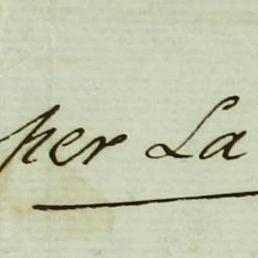 per La